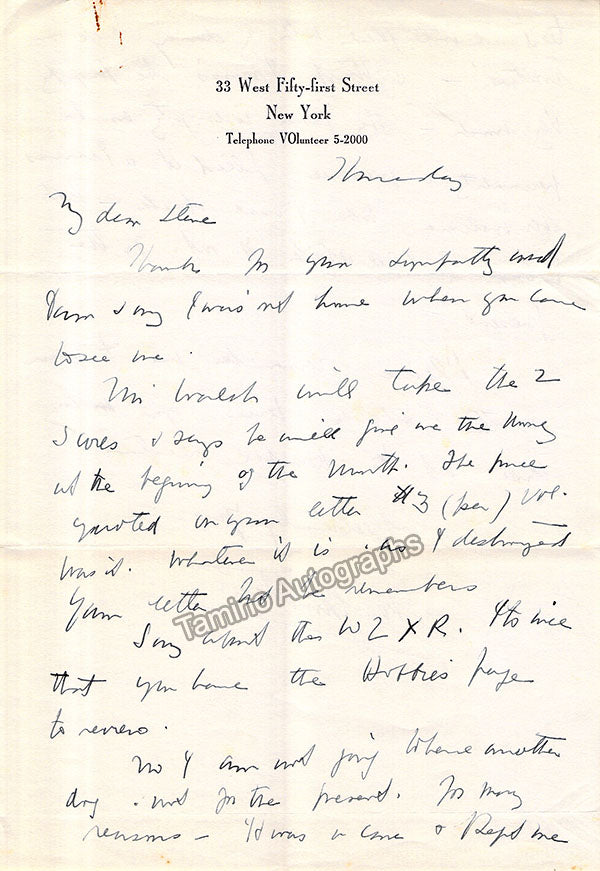 33 West Fifty-first Street
New York
Telephone VOlunteer 5-2000
Thursday
My dear Steve
Thanks for your sympathy and
I was not home when you came
to see me.
Mr Walsh will take the 2
scores & says he will give me the money
at the begining of the month. The price
quoted in your letter $3 (per) vol.
was it. Whatever it is as I destroyed
Your letter but he remembers
Tamino Autographs
Sorry about the W2XR. Its nice
that you have the Hobbies page
to review.
No I am not going to have another
dog. not for the present. For many
reasons — It was a care & Kept me